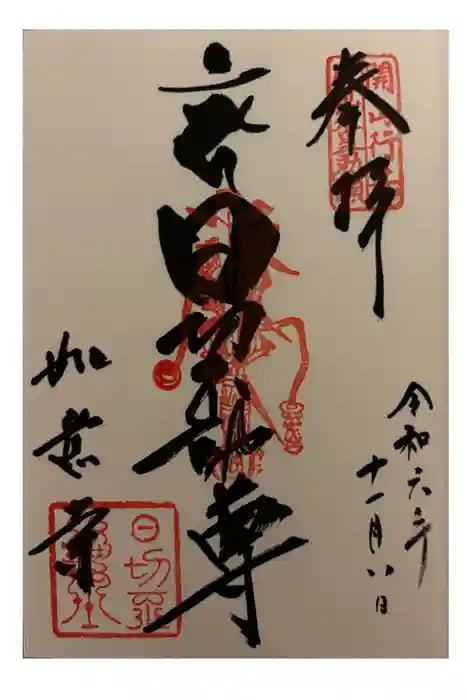 奉拝
令和六年
十一月八日
日切不動尊
如意寺
開山行
日切